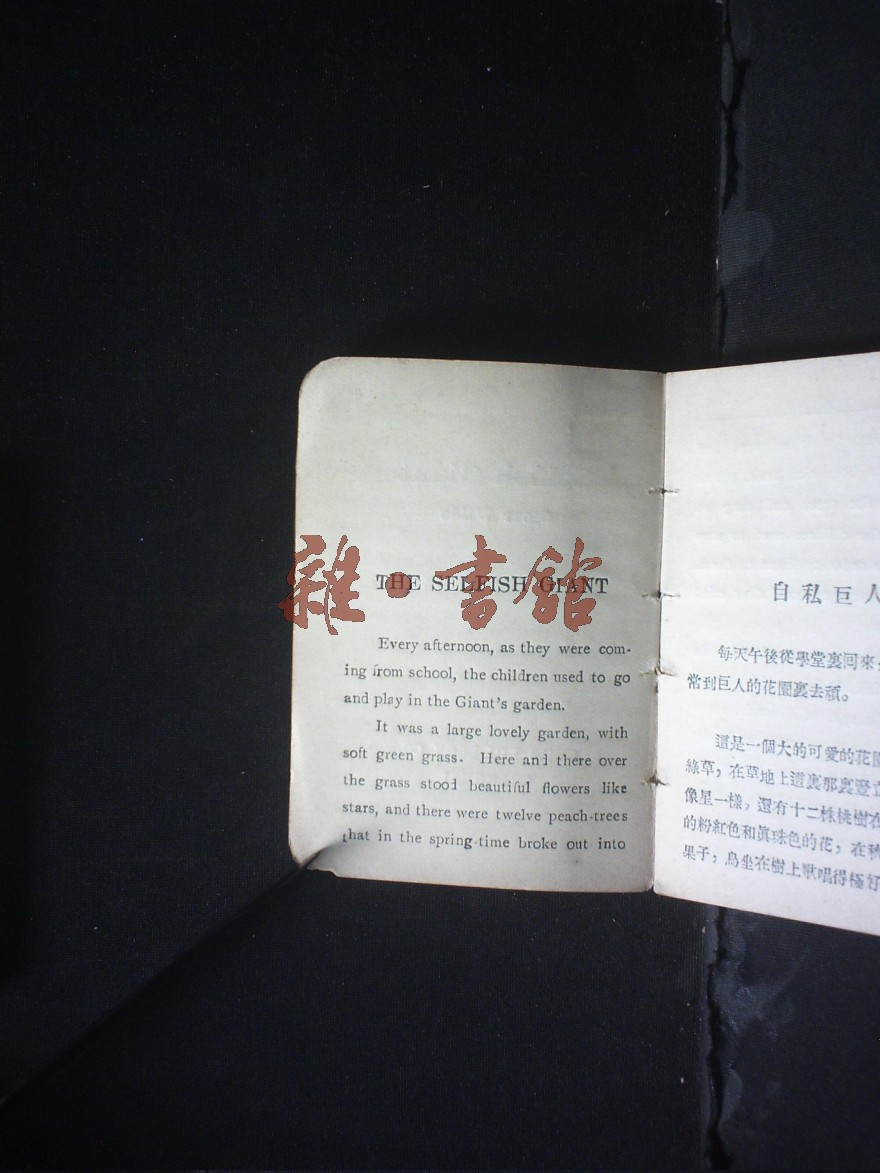 THE SELFISH GIANT
Every afternoon, as they were com-
ing from school, the children used to go
and play in the Giant's garden.
It was a large lovely garden, with
soft green grass. Here and there over
the grass stood beautiful flowers like
stars, and there were twelve peach-trees
that in the spring-time broke out into
自私巨人
每天午後從學堂裏回來
常到巨人的花園裏去頑。
這是一個大的可愛的花園
綠草；在草地上這裏那裏豎立
像星一樣，還有十二株桃樹在
的粉紅色和眞珠色的花；在秋
果子；鳥坐在樹上歌唱得極好
雜·書館